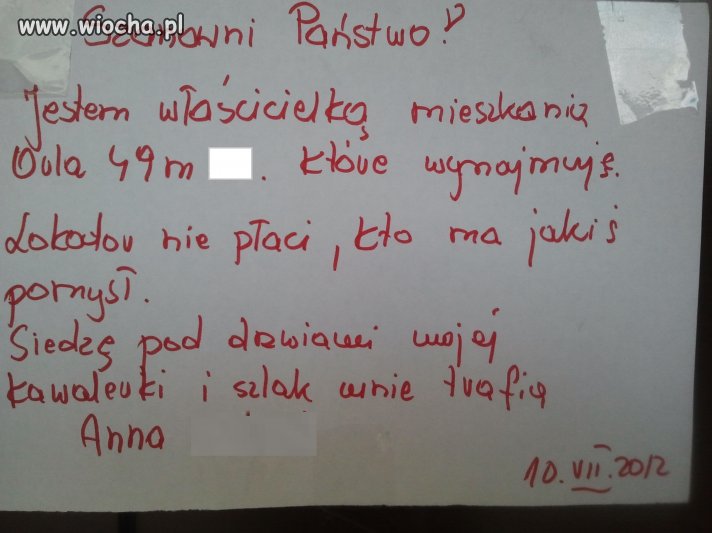 www.wiocha.pl
Szanowni Państwo!
Jestem właścicielką mieszkania
Orla 49m . które wynajmuję.
Lokator nie płaci, kto ma jakiś
pomysł.
Siedzę pod drzwiami mojej
kawalerki i szlak mnie trafia
Anna
10.VII.2012